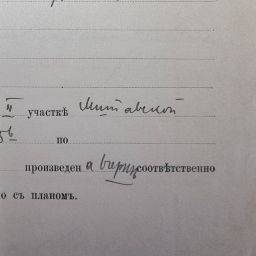 II участкѣ Митавской
по
произведен а вѣрн соотвѣтственно
о съ планомъ.